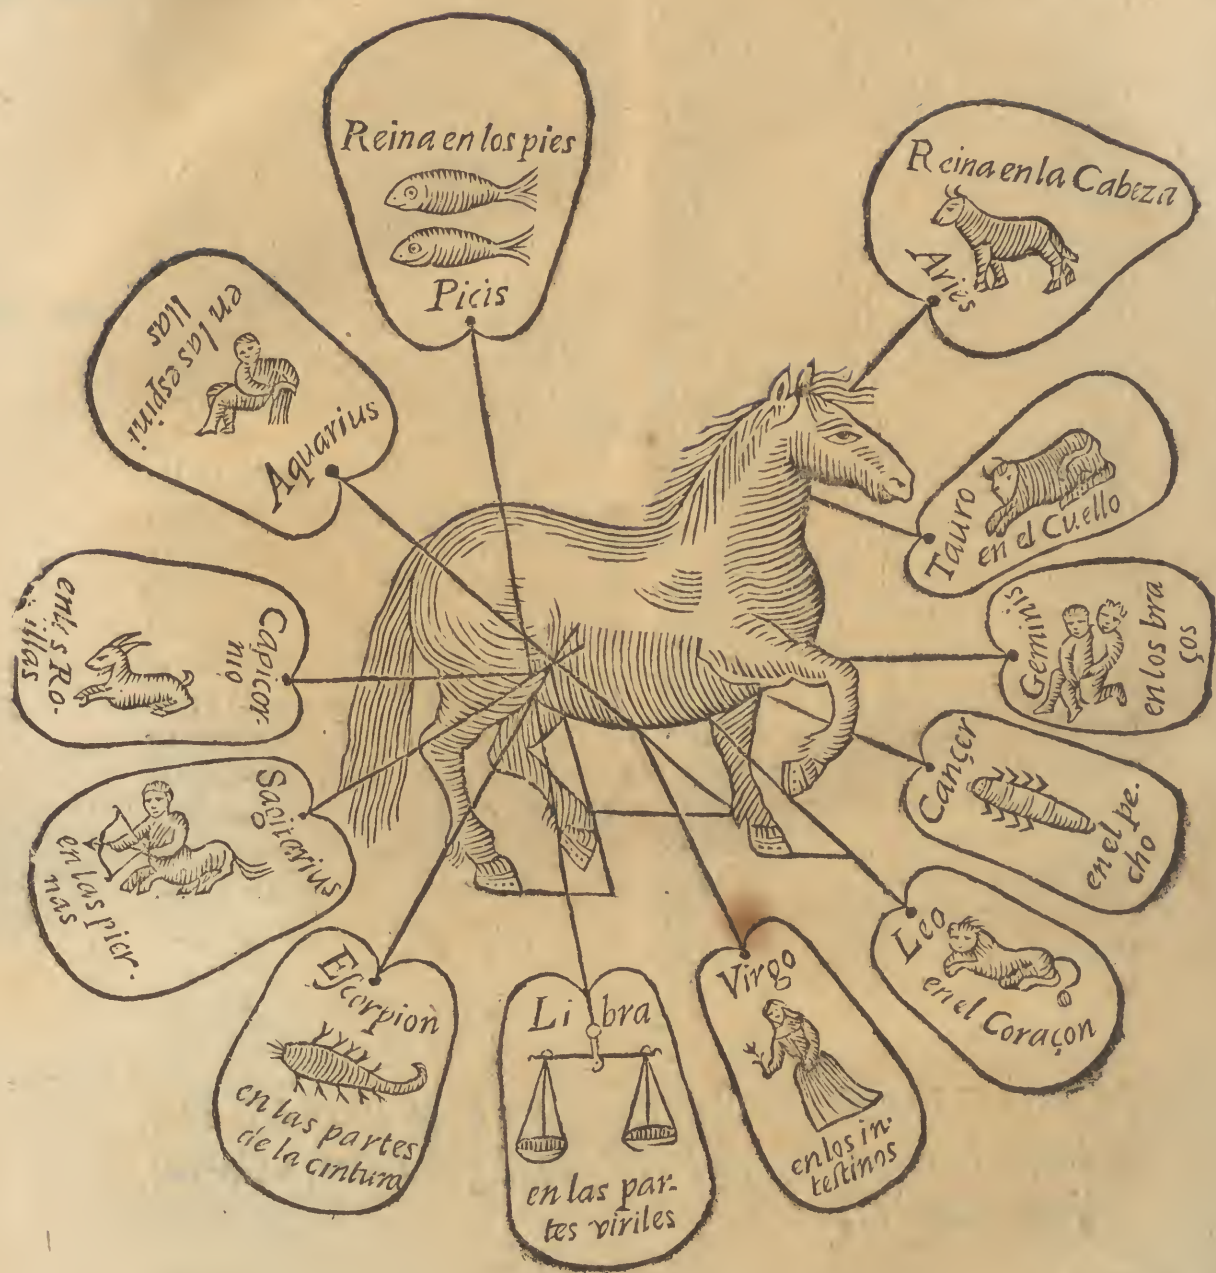 Reina en los pies
Picis
Reina en la Cabeza
Aries
Tauro
en el Cuello
Geminis
en los bra
ços
Cançer
en el pe-
cho
Leo
en el Coraçon
Virgo
en los in-
teſtinos
Libra
en las par-
tes viriles
Eſcorpion
en las partes
de la cintura
Sagitarius
en las pier-
nas
Capicor-
nio
en las Ro-
illas
Aquarius
en las espini
llas